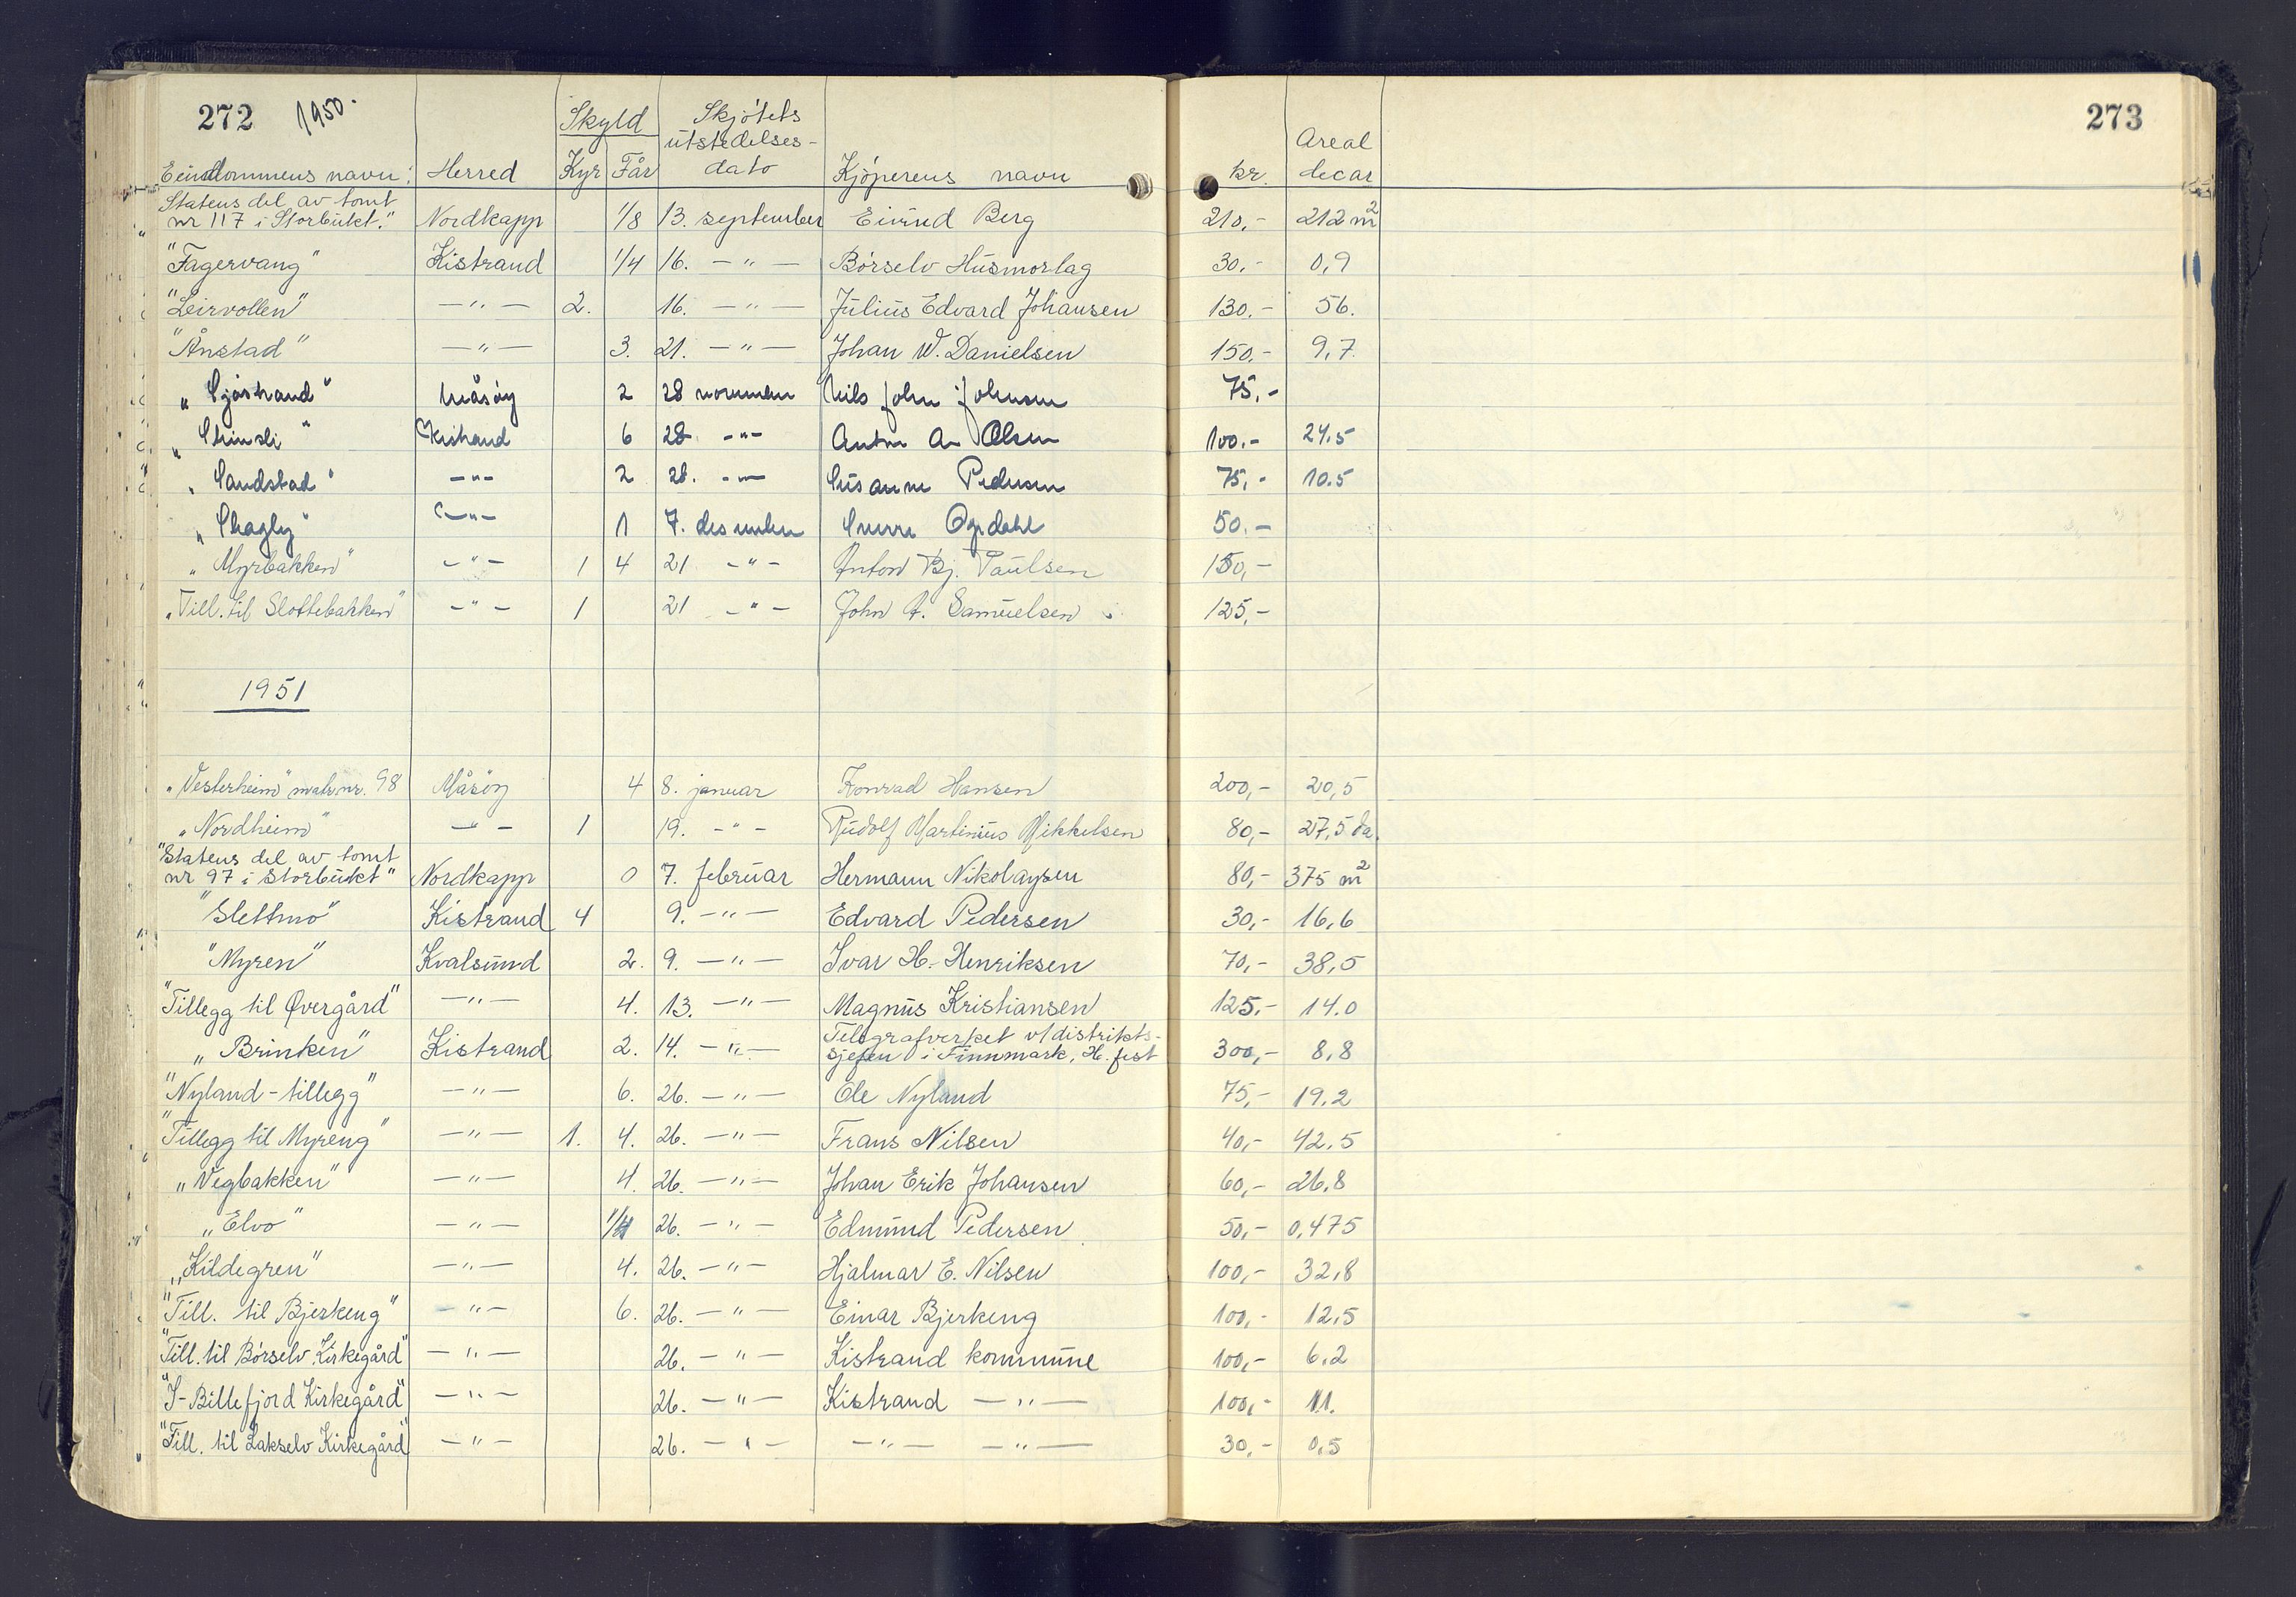 272 1950.
273
Skyld Skjøtets utstedelses- Areal
Eiendommens navn: Herred Kyr Får dato Kjøperens navn kr. decar
"Statens del av tomt
nr 117 i Storbukt." Nordkapp 1/8 13. september Eivind Berg 210,- 212 m²
"Fagervang" Kistrand 1/4 16. — " — Børselv Husmorlag 30,- 0,9
"Leirvollen" — " — 2. 16. — " — Julius Edvard Johansen 130,- 56.
"Ånstad" — " — 3. 21. — " — Johan W. Danielsen 150,- 9,7
"Sjøstrand" Måsøy 2 28 november Nils John Johnsen 75,-
Kistrand 6 28 - " - Anton A. Olsen 100,- 24,5
"Sandstad" - " - 2 28. - " - Susanne Pedersen 75,- 10.5
"Skogly" - " - 1 7. desember Sverre Opdahl 50.-
"Myrbakken" - " - 1 4 21 - " - Anton Bj. Paulsen 150,-
"Till. til Slottebakken" - " - 1 21 - " - John A. Samuelsen 125,-
1951
"Vesterheim" matr.nr. 98 Måsöy 4 8. januar Konrad Hansen 200,- 20,5
"Nordheim" — " — 1 19. - " - Rudolf Martinius Mikkelsen 80,- 27,5 da.
"Statens del av tomt
nr 97 i Storbukt" Nordkapp 0 7. februar Hermann Nikolaysen 80,- 375 m²
"Slettmo" Kistrand 4 9. — " — Edvard Pedersen 30,- 16,6
"Myren" Kvalsund 2. 9. — " — Ivar H. Henriksen 70,- 38,5
"Tillegg til Øvergård" — " — 4. 13. — " — Magnus Kristiansen 125,- 14.0
"Brinken" Kistrand 2. 14. — " — Telegrafverket v/distrikts-
sjefen i Finnmark, H.fest 300,- 8,8
"Nyland-tillegg" — " — 6. 26. — " — Ole Nyland 75,- 19.2
"Tillegg til Myreng" — " — 1. 4. 26. — " — Frans Nilsen 40,- 42.5
"Vegbakken" — " — 4. 26. — " — Johan Erik Johansen 60,- 26.8
"Elvo" — " — 1/4 26. — " — Edmund Pedersen 50,- 0,475
"Kildegren" — " — 4. 26. — " — Hjalmar E. Nilsen 100,- 32,8
"Till. til Bjerkeng" — " — 6. 26. — " — Einar Bjerkeng 100,- 12,5
"Till. til Børselv Kirkegård" — " — 26. — " — Kistrand kommune 100,- 6.2
"I-Billefjord Kirkegård" — " — 26. — " — Kistrand — " — 100,- 11.
"Till. til Lakselv Kirkegård" — " — 26. — " — — " — — " — 30,- 0.5